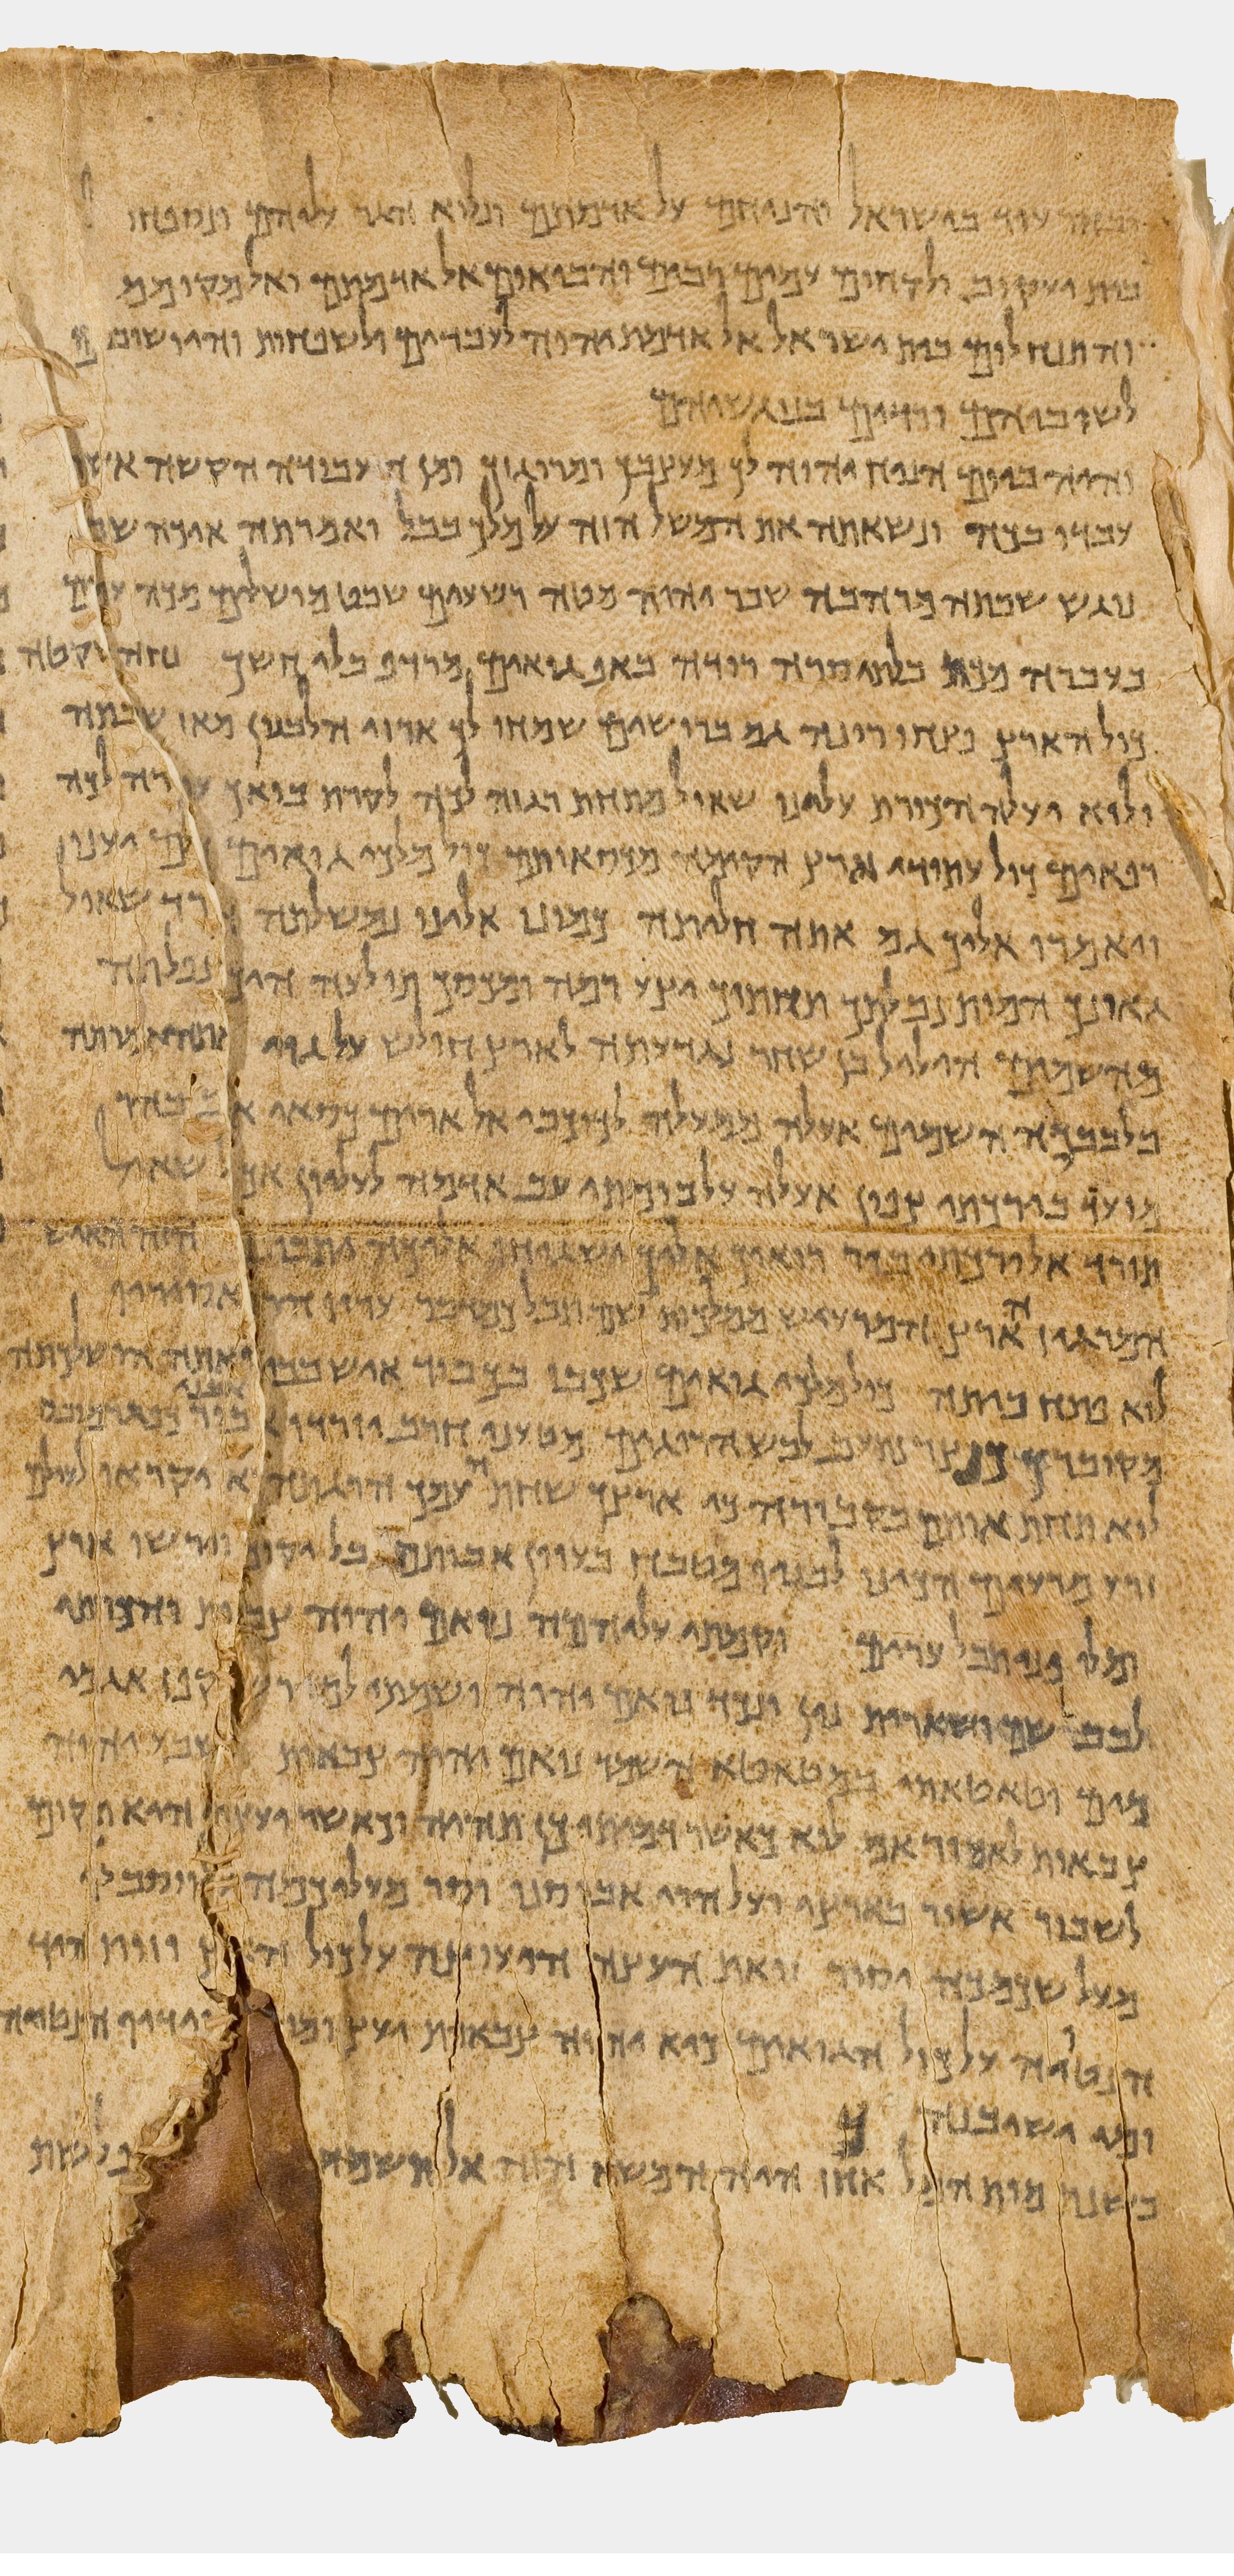 ובחר עוד בישראל והניחם על אדמתם ונלוא הגר עליהם ונספחו
בית יעקוב ולקחום עמים רבים והביאום אל אדמתם ואל מקומם
והתנחלום בית ישראל אל אדמת יהוה לעבדים ולשפחות והיו שובים
לשוביהם ורדים בנוגשיהם
והיה ביום הניח יהוה לך מעצבך ומרוגזך ומן העבודה הקשה אשר
עבדו בכה ונשאתה את המשל הזה על מלך בבל ואמרתה איכה שבת
נגש שבתה מרהבה שבר יהוה מטה רשעים שבט מושלים מכה עמים
בעברה מכת בלתי סרה רודה באף גואים מרדף בלי חשך נחה שקטה
כול הארץ פצחו רינה גם ברושים שמחו לך ארזי הלבנון מאז שכבתה
ולוא יעלה הכורת עלינו שאול מתחת רגזה לכה לקרת בואך עוררה לכה
רפאים כול עתודי ארץ הקימה מכסאותם כול מלכי גואים כולם יענו
ויאמרו אליך גם אתה חליתה כמונו אלינו נמשלתה הורד שאול
גאונך המות נבלתך תחתיך יצע רמה ומכסך תולעה היך נפלתה
מהשמים הילל בן שחר נגדעתה לארץ חולש על גוי ואתה אמרתה
בלבבכה השמים אעלה ממעלה לכוכבי אל ארים כסאי אשב בהר
מועד בירכתי צפון אעלה על בומתי עב אדמה לעליון אך אל שאול
תורד אל ירכתי בור רואיך אליך ישגיחו הזה האיש
המרגיז הארץ המרעיש ממלכות שם תבל כמדבר עריו הרס אסיריו
לוא פתח ביתה כול מלכי גואים שכבו בכבוד איש בביתו ואתה השלכתה
מקוברך כנצר נתעב לבוש הרוגים מטעני חרב יורדי אל אבני בור כפגר מובס
לוא תחת אותם בקבורה כי ארצך שחת עמך הרגתה לוא יקראו לעולם
זרע מרעים הכינו לבניו מטבח בעוון אבותם בל יקומו וירשו ארץ
ומלו פני תבל ערים וקמתי עליהמה נואם יהוה צבאות והכרתי
לבבל שם ושארית נין ונכד נואם יהוה ושמתי למורש קפז אגמי
מים וטאטאתי במטאטא השמד נואם יהוה צבאות נשבע יהוה
צבאות לאמור אם לוא כאשר דמיתי כן תהיה וכאשר יעצתי היא תקום
לשבור אשור בארצי ועל הרי אבוסנו וסר מעליכמה וסבלו
מעל שכמכה יסור זאת העצה היעוצה על כול הארץ וזות היד
הנטויה על כול הגואים כיא יהוה צבאות יעץ ומי וידו הנטויה
ומי ישיבנה
בשנת מות המלך אחז היה המשא הזה אל תשמחי פלשת